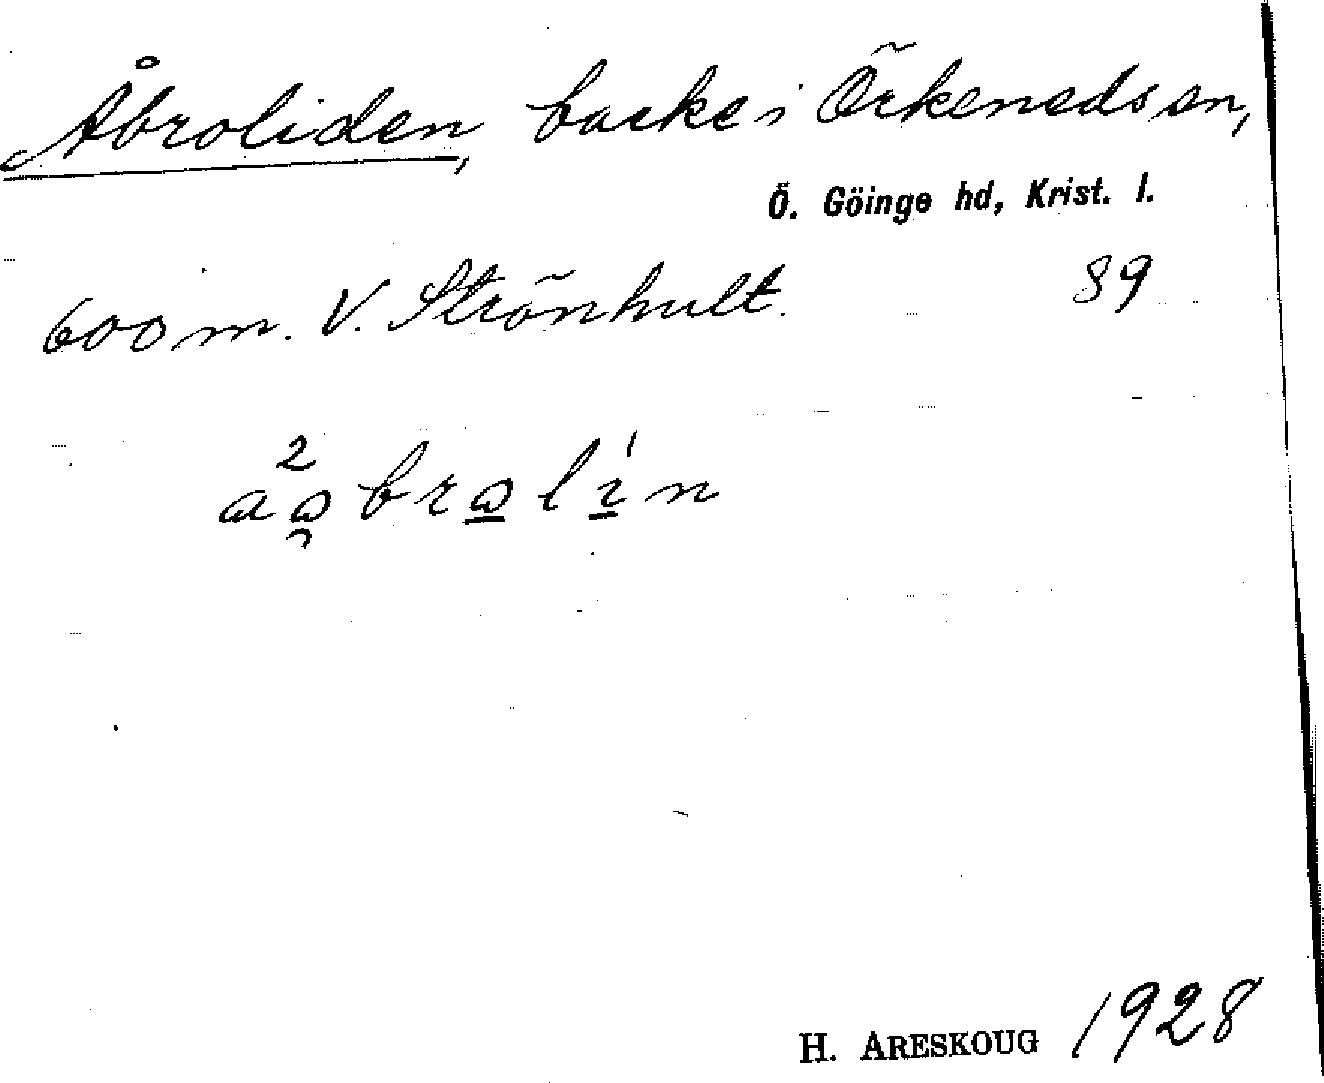 Åbroliden, backe i Örkeneds sn,
Ö. Göinge hd, Krist. l.
600 m. V. Strönhult. 89
H. ARESKOUG 1928